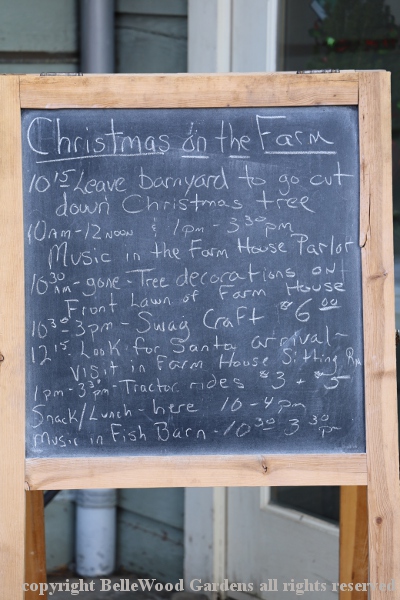 Christmas on the Farm
10 15 Leave barnyard to go cut
down Christmas tree
10 AM - 12 NOON & 1pm - 3 30 pm
Music in the Farm House Parlor
10 30 AM - gone - Tree decorations on
Front Lawn of Farm House
10 30 - 3pm - Swag Craft $6 00
12 15 Look for Santa arrival -
visit in Farm House Sitting Rm
1pm - 3 30 pm - Tractor rides $3 + $5
Snack/Lunch - here 10 - 4pm
Music in Fish Barn - 10 30 - 3 30 pm
copyright BelleWood Gardens all rights reserved